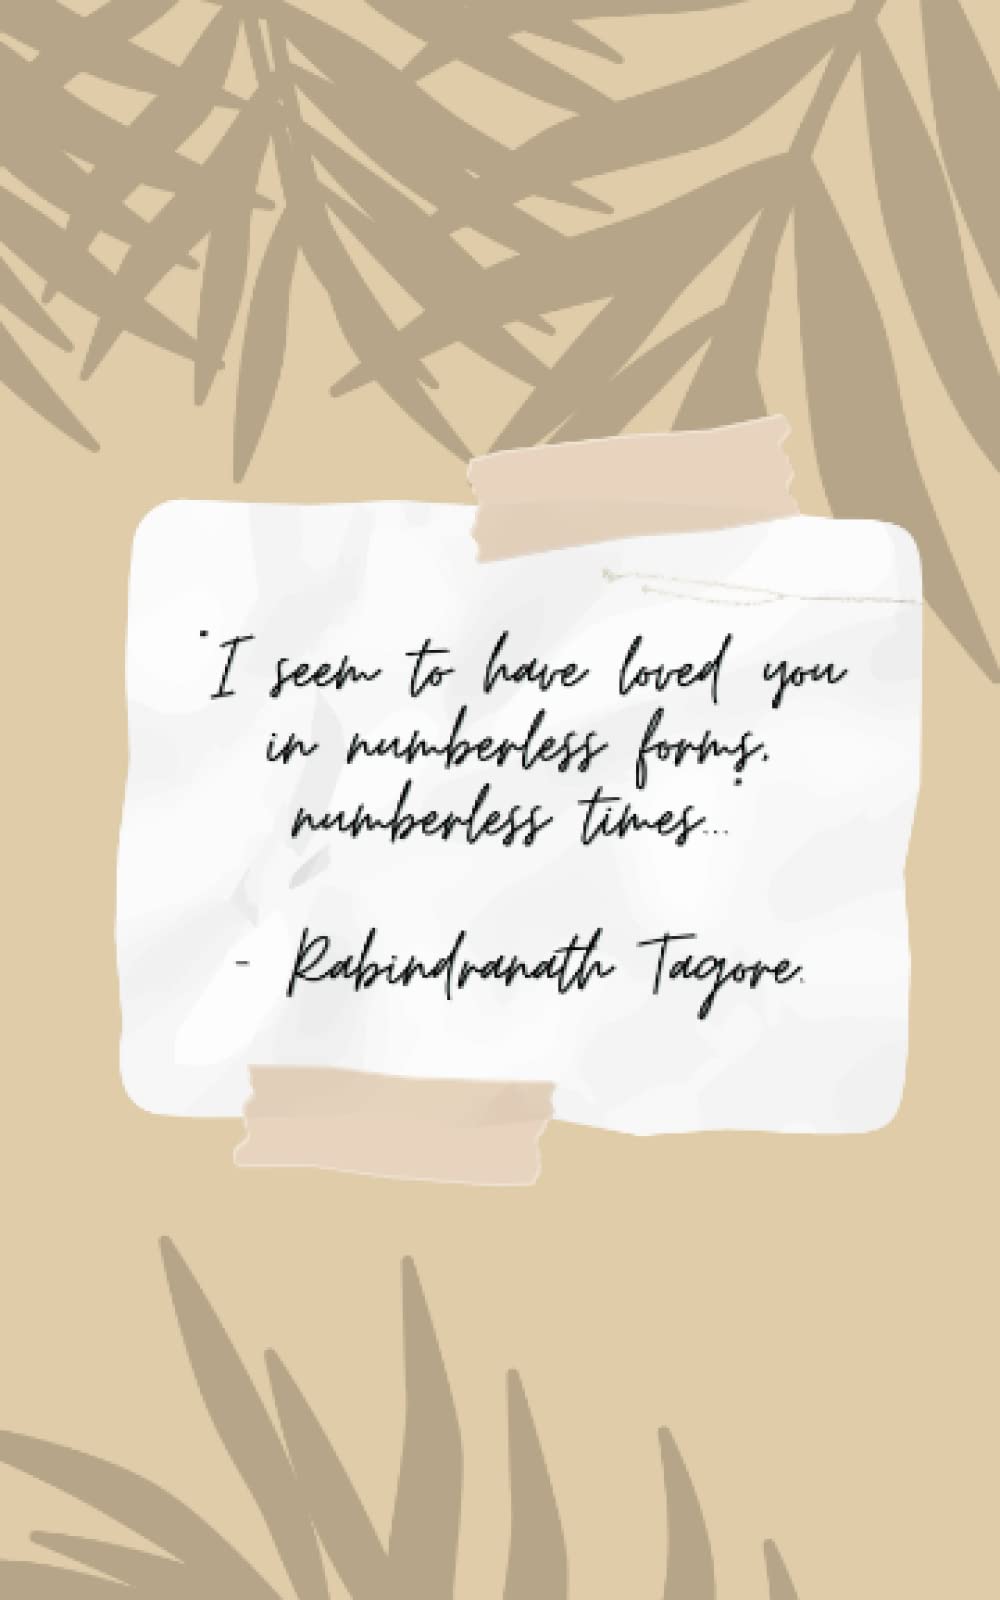 "I seem to have loved you
in numberless forms,
numberless times...
- Rabindranath Tagore.